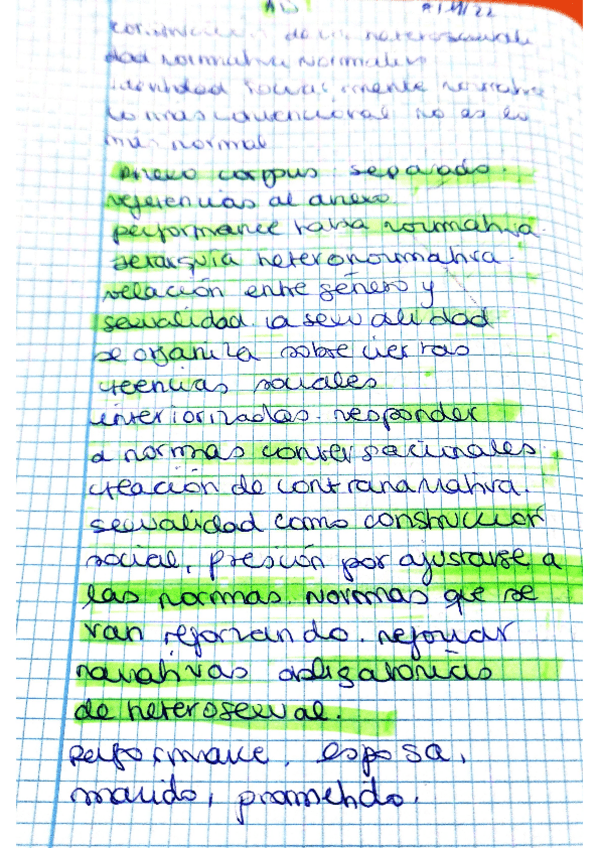 AD 21/11/22
construcción de la heterosexuali
dad normativa normales
identidad socialmente normativa
lo más convencional no es lo
más normal
Anexo corpus separado.
referencias al anexo
performance habla normativa.
Jerarquía heteronormativa.
relación entre género y
sexualidad. la sexualidad
se organiza sobre ciertas
creencias sociales
interiorizadas. responder
a normas conversacionales.
creación de contranarrativa.
sexualidad como construccion
social, presión por ajustarse a
las normas. Normas que se
van reforzando. reforzar
narrativas obligatorias
de heterosexual.
performance, esposa,
marido, prometido.